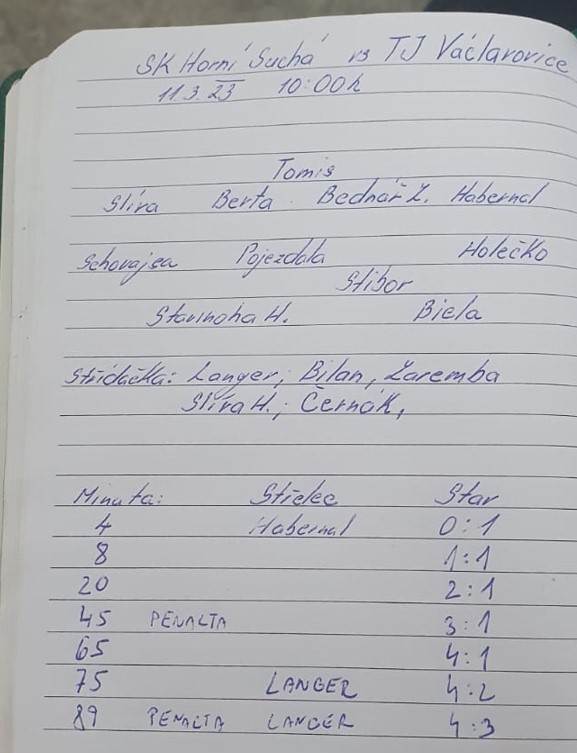 SK Horní Suchá vs TJ Václavovice
11.3.23 10:00h
Tomis
Slíva Berta Bednář Z. Habernal
Schovajsa Pojezdala Holečko
Stibor
Stavinoha H. Biela
Střídačka: Langer, Bilan, Zaremba
Slíva H., Černák,
Minuta: Střelec Stav
4 Habernal 0:1
8 1:1
20 2:1
45 PENALTA 3:1
65 4:1
75 LANGER 4:2
89 PENALTA LANGER 4:3